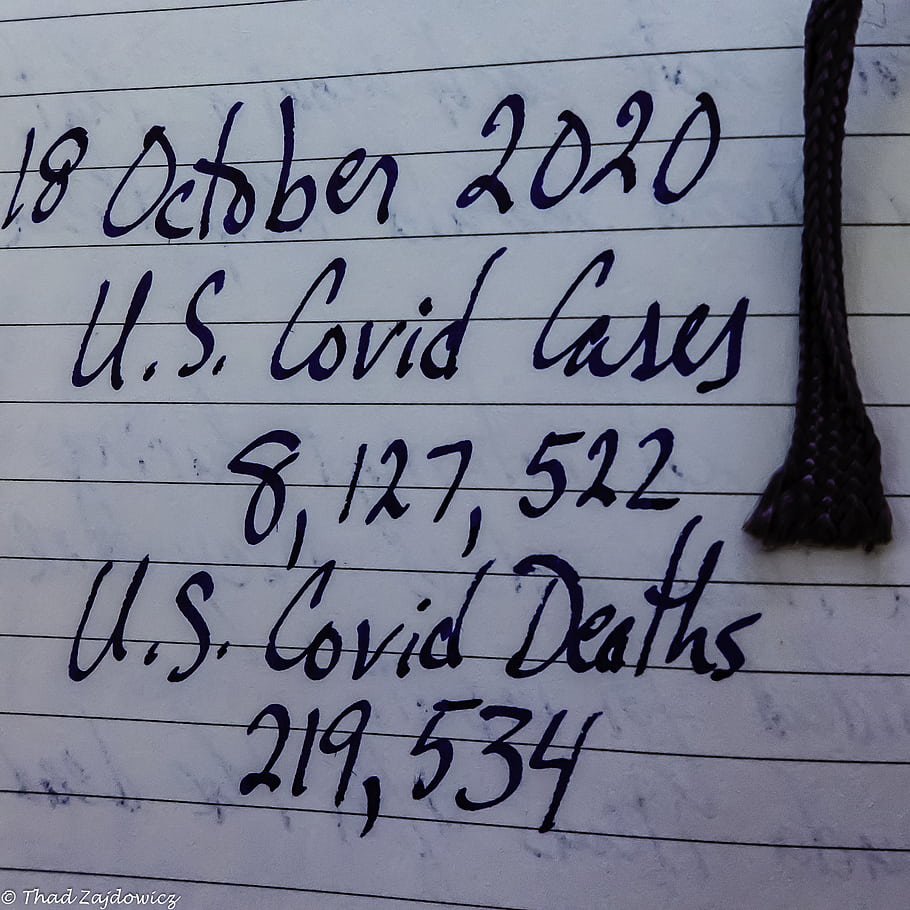 18 October 2020
U.S. Covid Cases
8,127,522
U.S. Covid Deaths
219,534
© Thad Zajdowicz